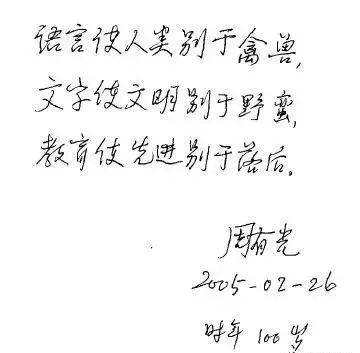 语言使人类别于禽兽,
文字使文明别于野蛮,
教育使先进别于落后.
周有光
2005-02-26
时年 100 岁